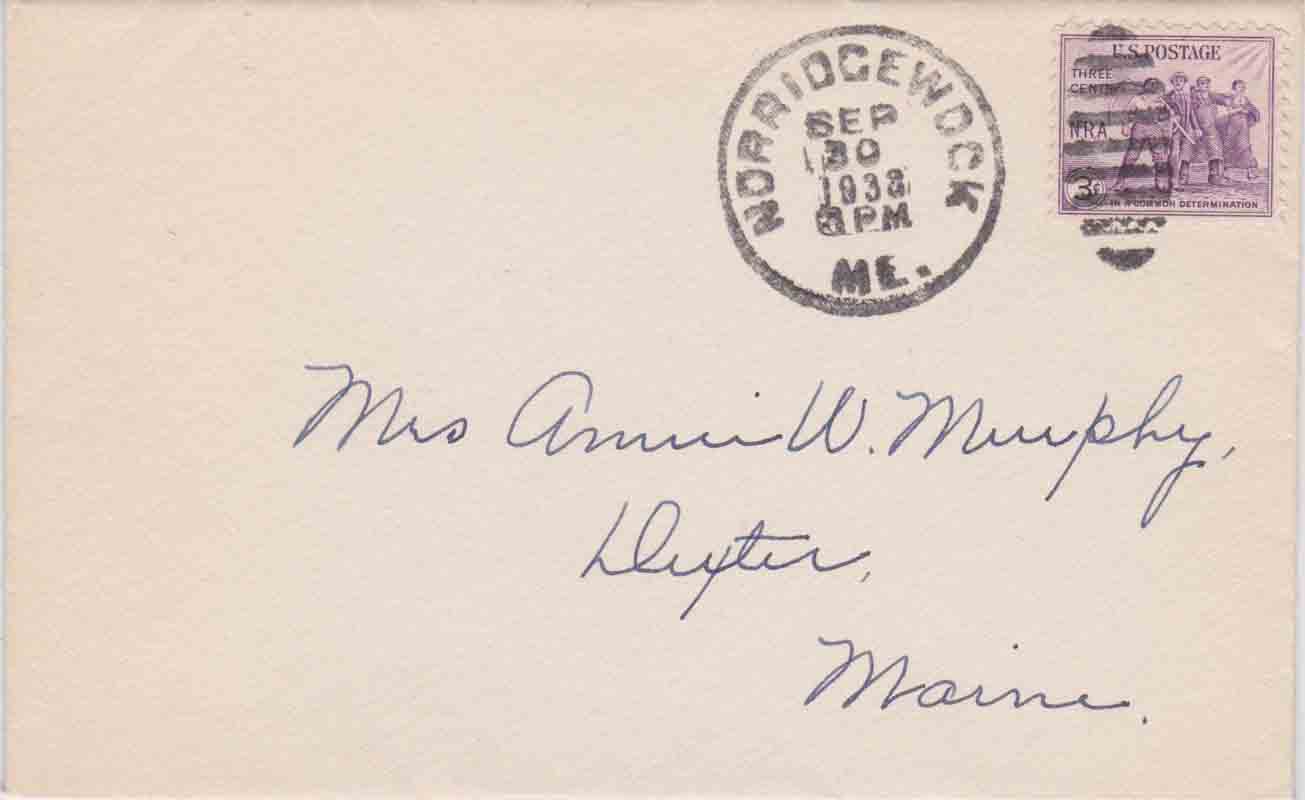 NORRIDGEWOCK
SEP
30
1933
PM
ME.
U.S. POSTAGE
THREE
CENTS
NRA
3¢
IN A COMMON DETERMINATION
Mrs Annie W. Murphy,
Dexter,
Maine.